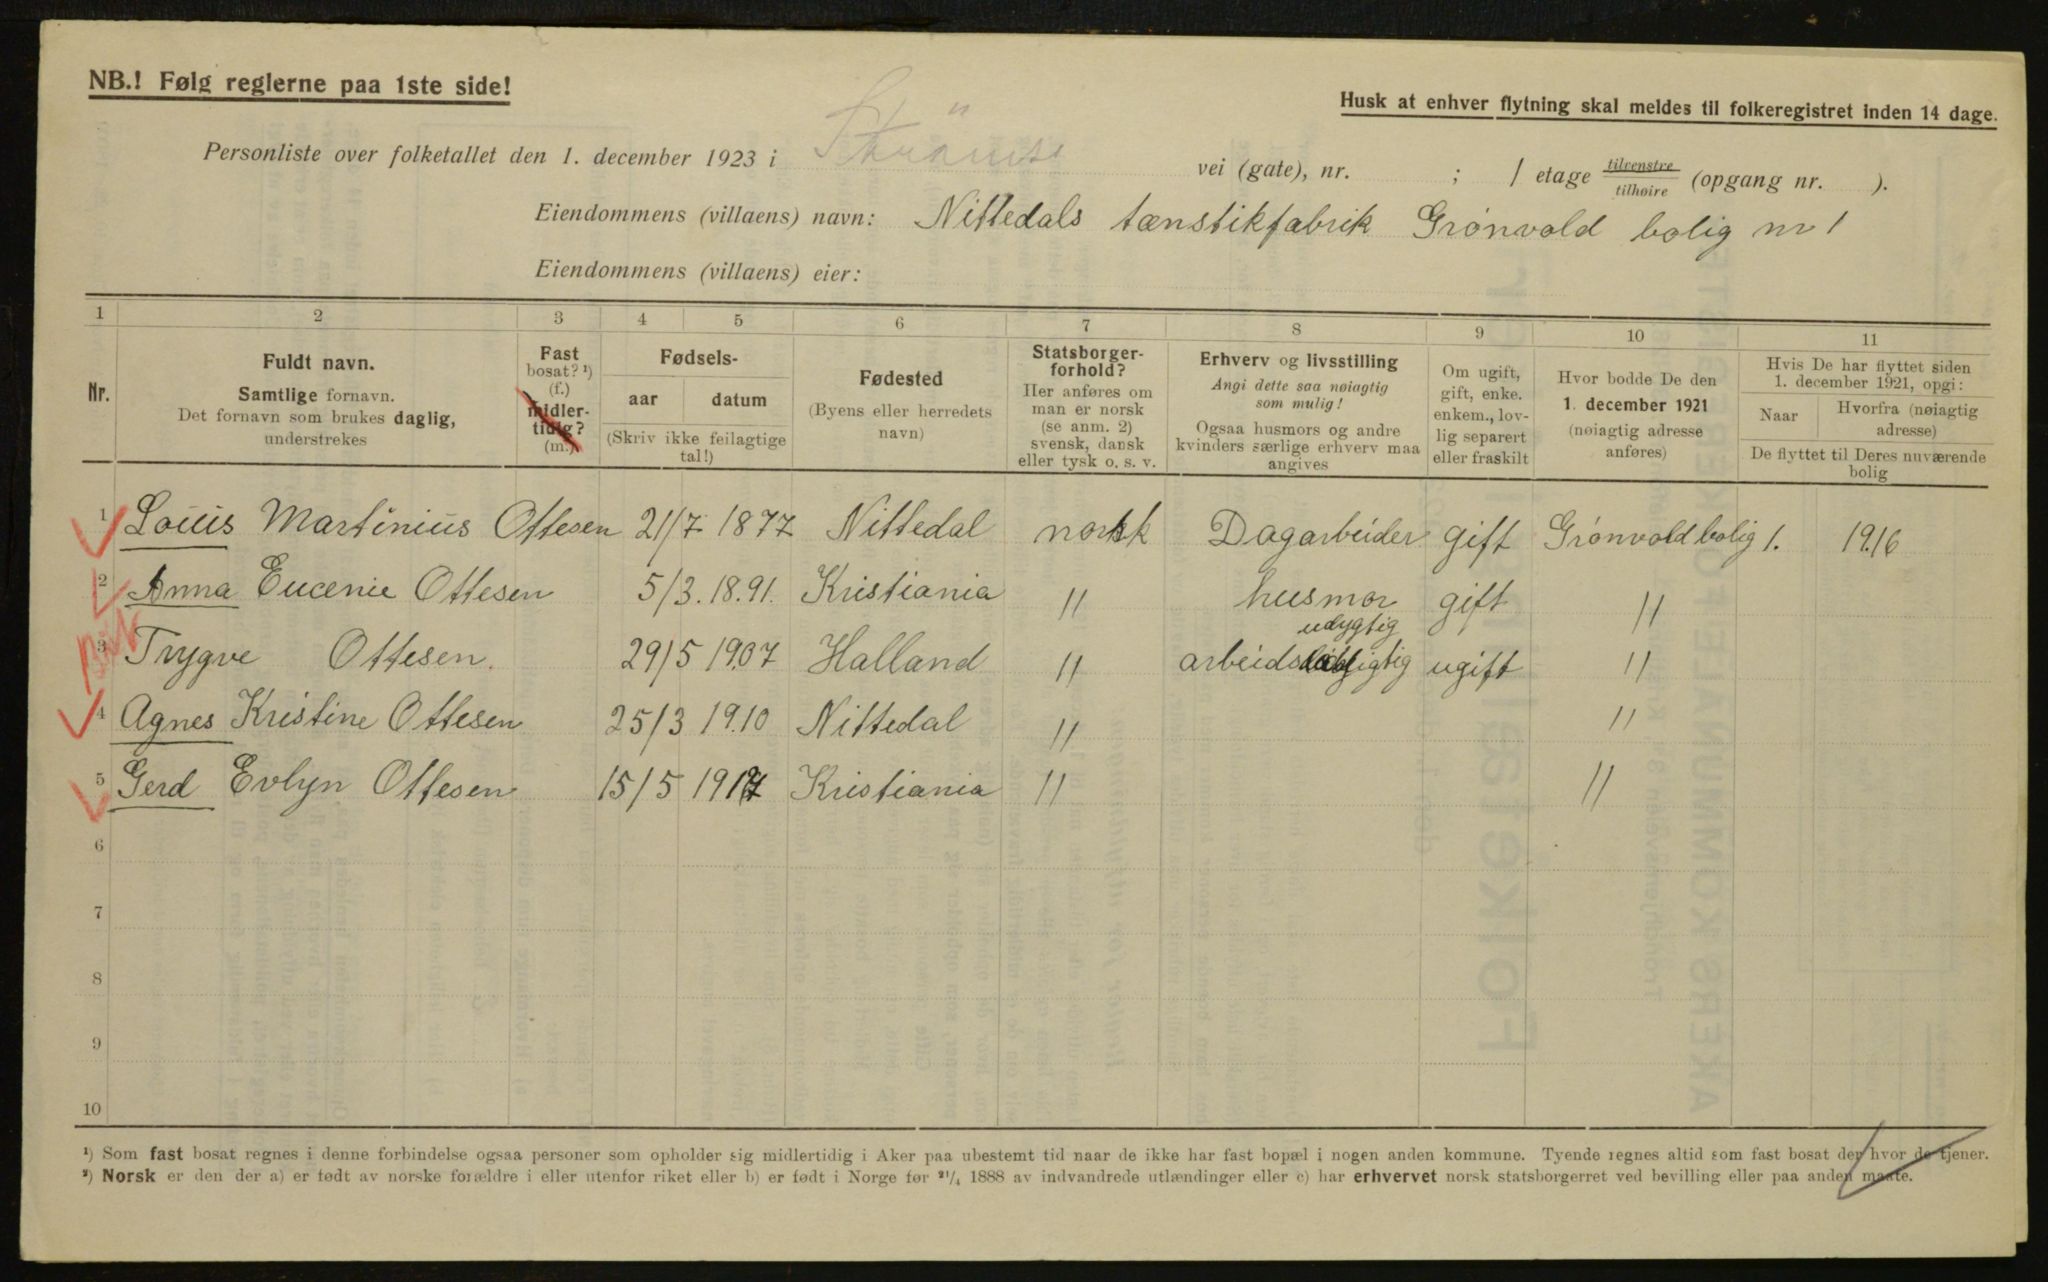 NB.! Følg reglerne paa 1ste side!
Husk at enhver flytning skal meldes til folkeregistret inden 14 dage.
Personliste over folketallet den 1. december 1923 i vei (gate), nr. ; 1 etage tilvenstre tilhøire (opgang nr. ).
Eiendommens (villaens) navn: Nittedals tænstikfabrik Grønvold bolig nr 1
Eiendommens (villaens) eier:
1 2 3 4 5 6 7 8 9 10 11
Nr.
Fuldt navn.
Samtlige fornavn.
Det fornavn som brukes daglig,
understrekes
Fast
bosat? ¹)
(f.)
midler-
tidig?
(m.)
Fødsels-
aar datum
(Skriv ikke feilagtige
tal!)
Fødested
(Byens eller herredets
navn)
Statsborger-
forhold?
Her anføres om
man er norsk
(se anm. 2)
svensk, dansk
eller tysk o. s. v.
Erhverv og livsstilling
Angi dette saa nøiagtig
som mulig!
Ogsaa husmors og andre
kvinders særlige erhverv maa
angives
Om ugift,
gift, enke.
enkem., lov-
lig separert
eller fraskilt
Hvor bodde De den
1. december 1921
(nøiagtig adresse
anføres)
Hvis De har flyttet siden
1. december 1921, opgi:
Naar
Hvorfra (nøiagtig
adresse)
De flyttet til Deres nuværende
bolig
1 Louis Martinius Ottesen 21/7 1877 Nittedal norsk Dagarbeider gift Grønvold bolig 1. 1916
2 Anna Eucenie Ottesen 5/3. 18.91. Kristiania " husmor gift "
udygtig
3 Trygve Ottesen. 29/5 1907 Halland " arbeids ugift "
4 Agnes Kristine Ottesen 25/3 19.10 Nittedal " "
5 Gerd Evlyn Ottesen 15/5 1917 Kristiania " "
6
7
8
9
10
¹) Som fast bosat regnes i denne forbindelse ogsaa personer som opholder sig midlertidig i Aker paa ubestemt tid naar de ikke har fast bopæl i nogen anden kommune. Tyende regnes altid som fast bosat der hvor de tjener.
²) Norsk er den der a) er født av norske forældre i eller utenfor riket eller b) er født i Norge før ²¹/₄ 1888 av indvandrede utlændinger eller c) har erhvervet norsk statsborgerret ved bevilling eller paa anden maate.